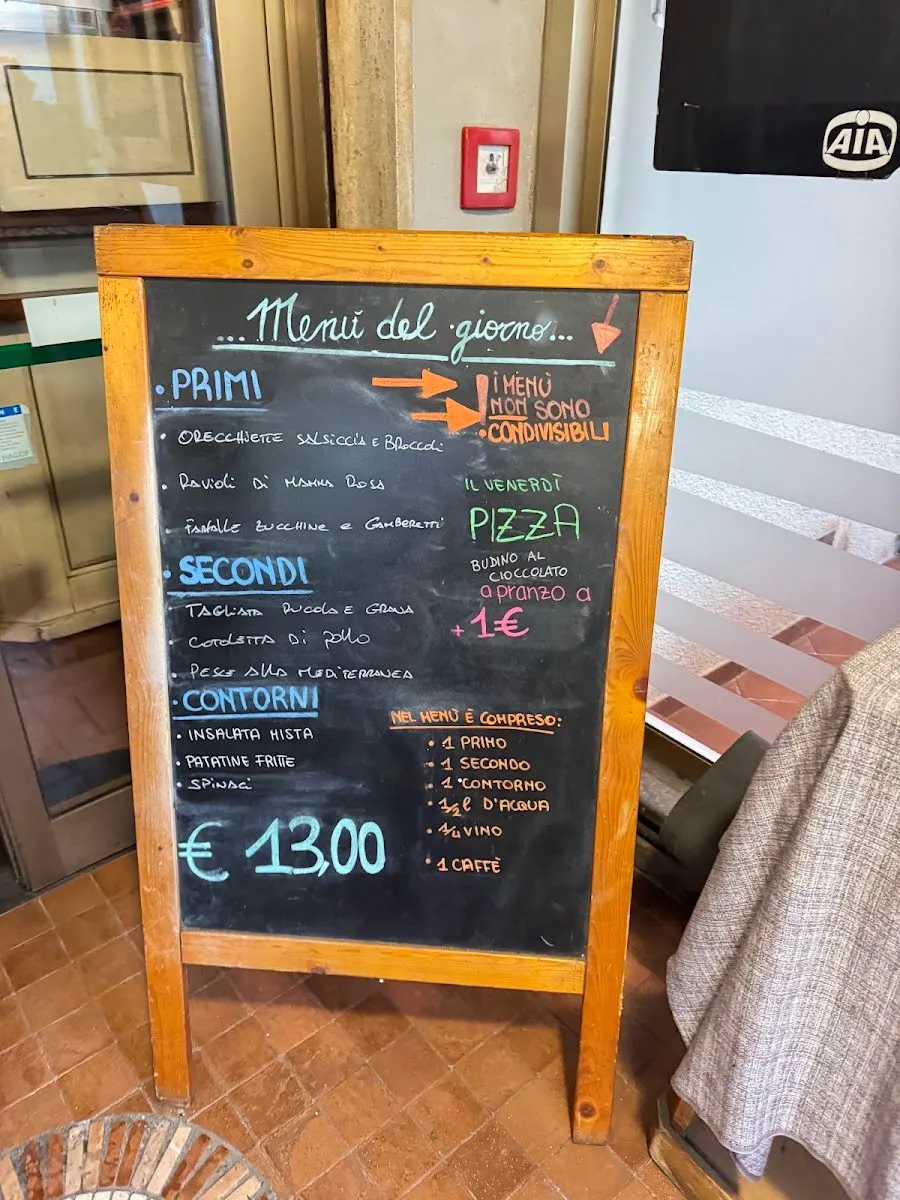 AIA
...Menú del giorno...
• PRIMI
• ORECCHIETTE SALSICCIA E BROCCOLI
• RAVIOLI DI MAMMA ROSA
• FARFALLE ZUCCHINE E GAMBERETTI
• SECONDI
• TAGLIATA RUCOLA E GRANA
• COTOLETTA DI POLLO
• PESCE ALLA MEDITERRANEA
• CONTORNI
• INSALATA MISTA
• PATATINE FRITTE
• SPINACI
€ 13,00
! I MENÙ
NON SONO
• CONDIVISIBILI
IL VENERDÌ
PIZZA
BUDINO AL
CIOCCOLATO
a pranzo a
+ 1€
NEL MENÙ È COMPRESO:
• 1 PRIMO
• 1 SECONDO
• 1 CONTORNO
• 1/2 l D'ACQUA
• 1/4 VINO
• 1 CAFFÈ
HACCP